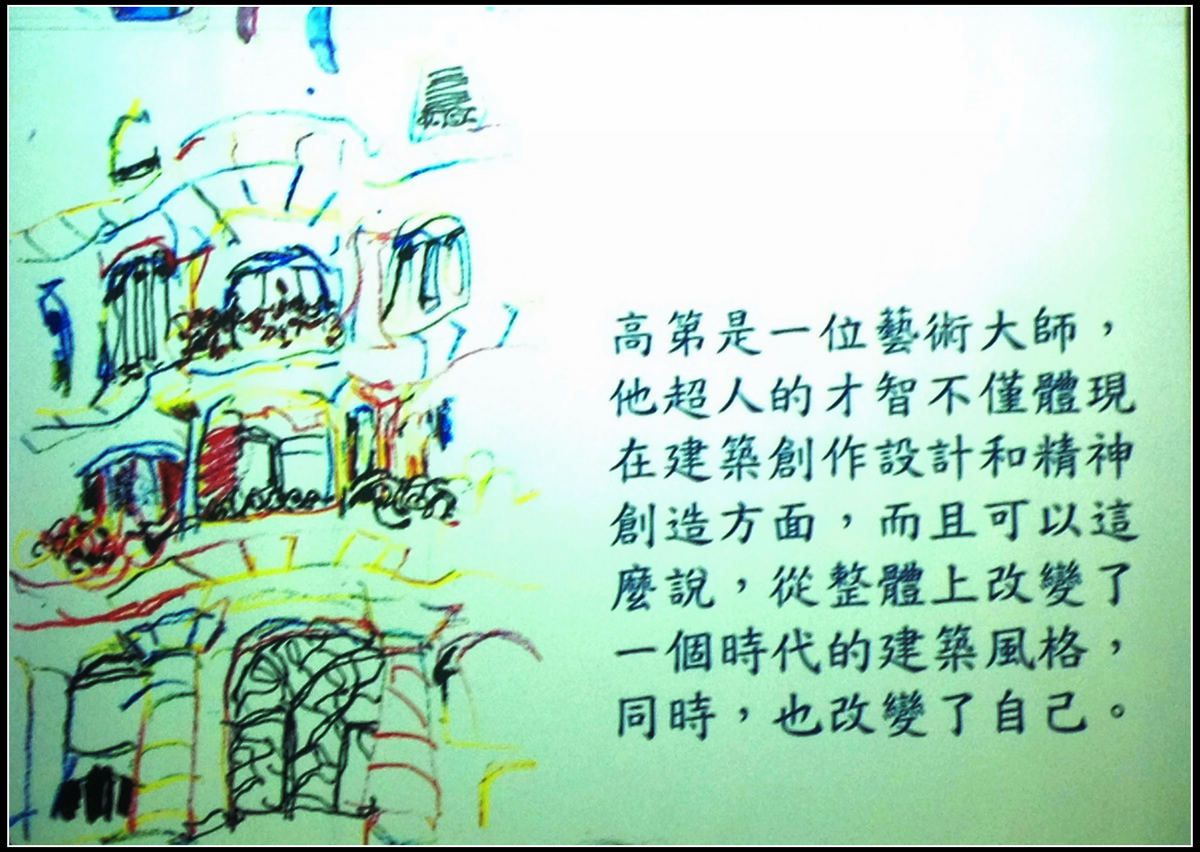 高第是一位藝術大師，
他超人的才智不僅體現
在建築創作設計和精神
創造方面，而且可以這
麼說，從整體上改變了
一個時代的建築風格，
同時，也改變了自己。